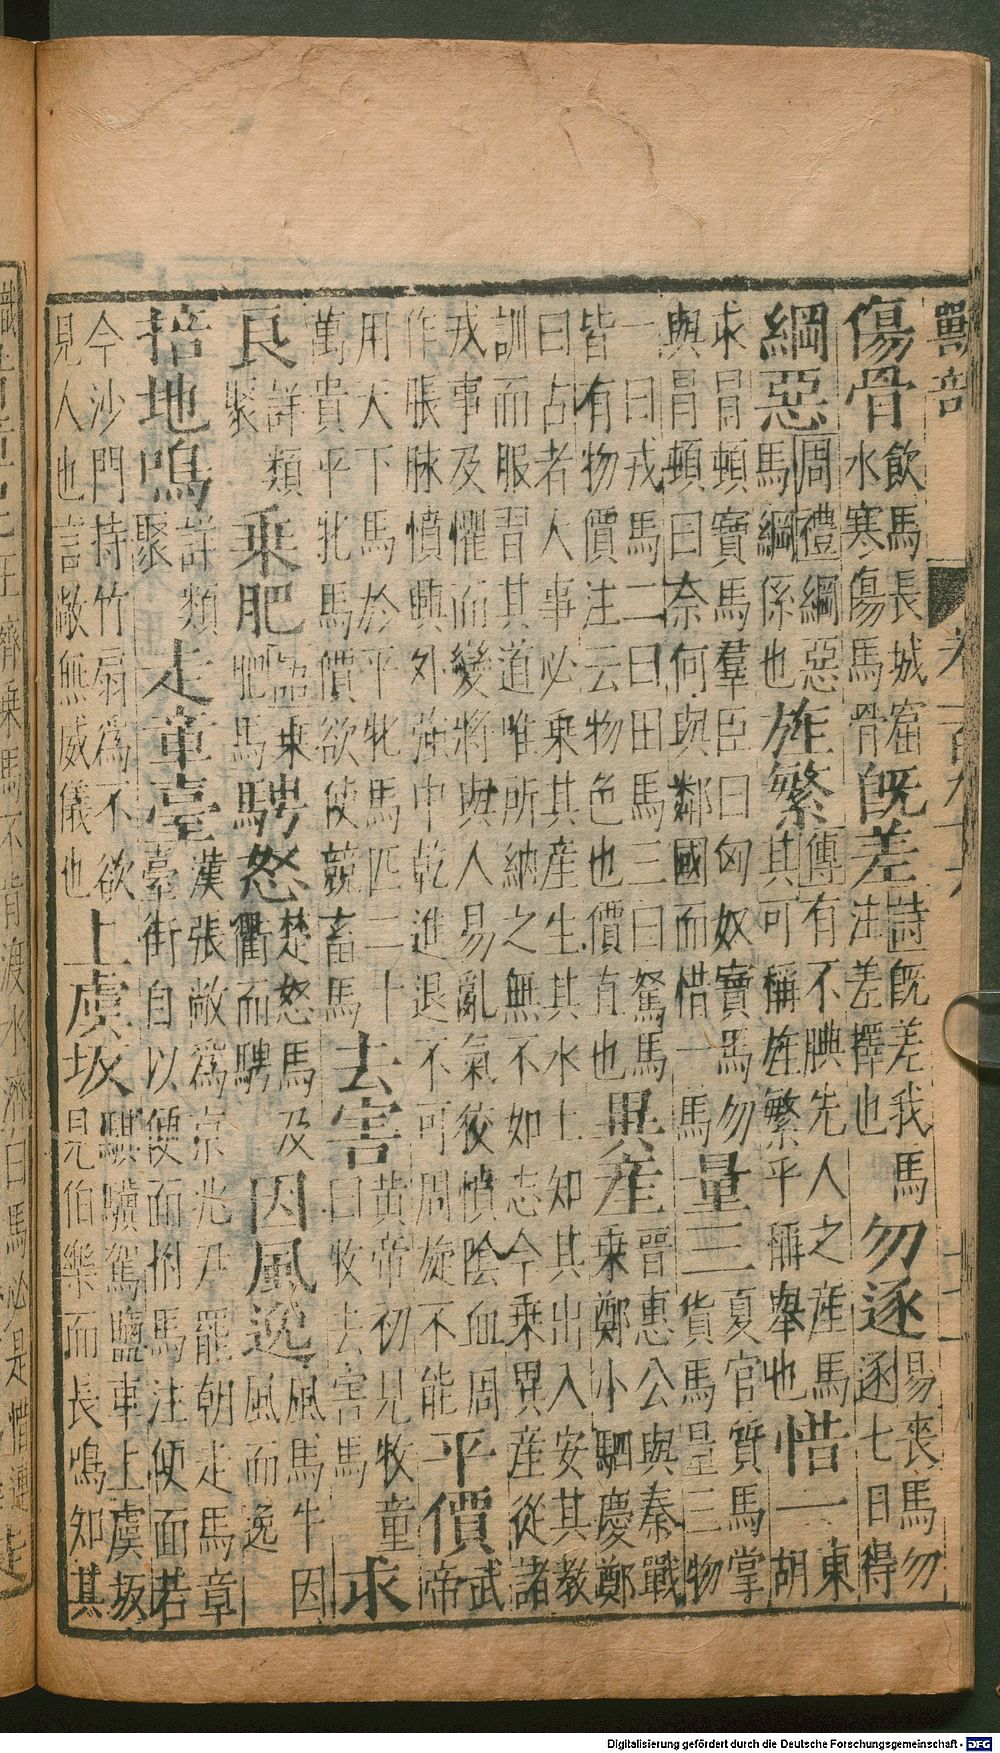 獸部
傷骨飲馬長城窟水寒傷馬骨既差詩既差我馬注差擇也勿逐易喪馬勿逐七日得
綱惡周禮綱惡馬綱係也旌繁傳有不腆先人之產馬其可稱旌繁乎稱舉也惜一東胡
求冒頓寶馬羣臣曰匈奴寶馬勿與冒頓曰奈何與鄰國而惜一馬量三夏官質馬掌貨馬量三物
一曰戎馬二曰田馬三曰駑馬皆有物價注云物色也價直也異產晉惠公與秦戰乘鄭小駟慶鄭
曰古者人事必乘其產生其水土知其出入安其教訓而服習其道唯所納之無不如志今乘異產從諸
戎事及懼而變將與人易亂氣狡憤陰血周作脹脉憤興外強中乾進退不可周旋不能平價武帝
用天下馬於平牝馬匹二十萬貴平牝馬價欲使競畜馬去害黃帝初見牧童曰牧去害馬求
良詳類聚乘肥乘肥馬騁怒楚怒馬及衢而騁因風逸風馬牛因風而逸
掊地鳴詳類聚走章臺漢張敞為京兆尹罷朝走馬章臺街自以便面拊馬注便面若
今沙門持竹扇為不欲見人也言敞無威儀也上虞坂騏驥駕鹽車上虞坂見伯樂而長鳴知其
Digitalisierung gefördert durch die Deutsche Forschungsgemeinschaft - DFG